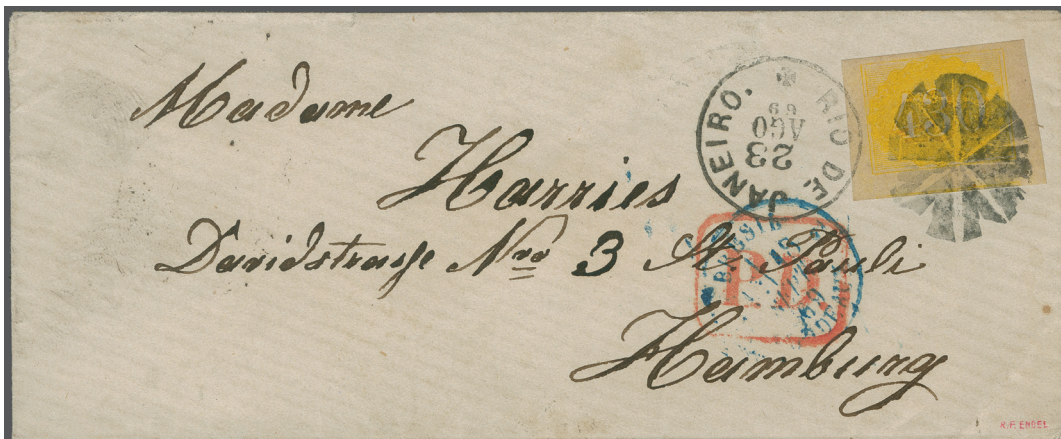 Madame
Harries
Davidstrasse Nro 3 St. Pauli
Hamburg
RIO DE JANEIRO.
23
AGO
69
430
P.D.
BRESIL
69
R.F. ENGEL